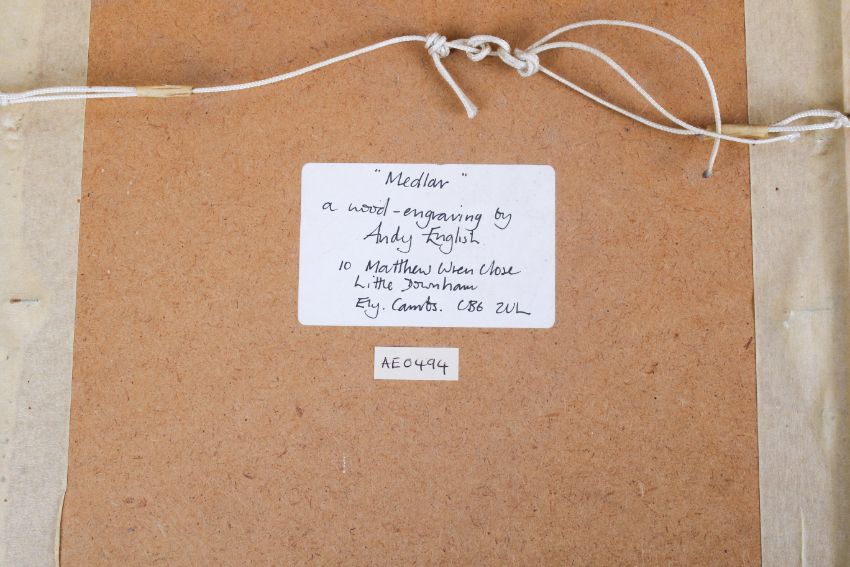 "Medlar"
a wood-engraving by
Andy English
10 Matthew Wren Close
Little Downham
Ely. Cambs. CB6 2UL
AE0494